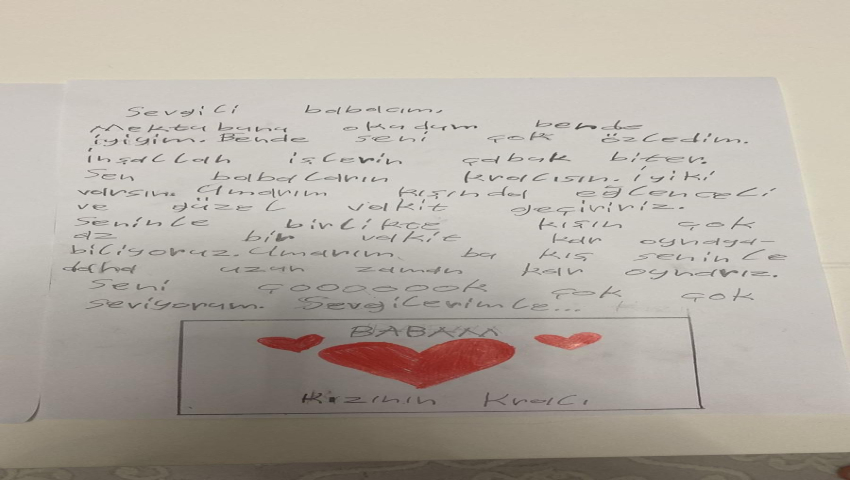 Sevgili babacım,
Mektubunu okudum bende
iyiyim. Bende seni çok özledim.
inşallah işlerin çabuk biter.
Sen babaların kralısın. iyiki
varsın. Umarım kışında eğlenceli
ve güzel vakit geçiririz.
Seninle birlikte kışın çok
az bir vakit kar oynaya-
biliyoruz. Umarım bu kış seninle
daha uzun zaman kar oynarız.
Seni çooooook çok çok
seviyorum. Sevgilerimle...
BABAM
Kızının Kralı